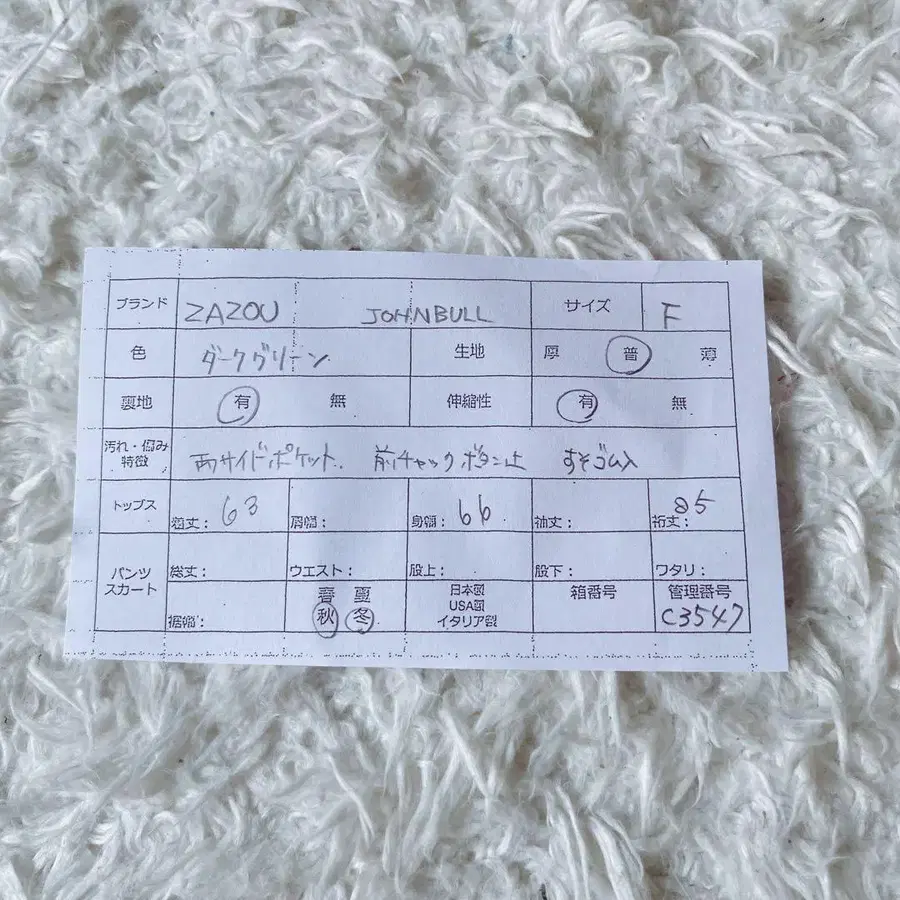 ブランド ZAZOU JOHNBULL サイズ F
色 ダークグリーン 生地 厚 普 薄
裏地 有 無 伸縮性 有 無
汚れ・傷み
特徴 両サイドポケット. 前チャックボタン止 すそゴム入
トップス 着丈: 63 肩幅: 身幅: 66 袖丈: 裄丈: 85
パンツ
スカート 総丈: ウエスト: 股上: 股下: ワタリ:
裾幅: 春 夏 秋 冬 日本製 USA製 イタリア製 箱番号 管理番号 C3547